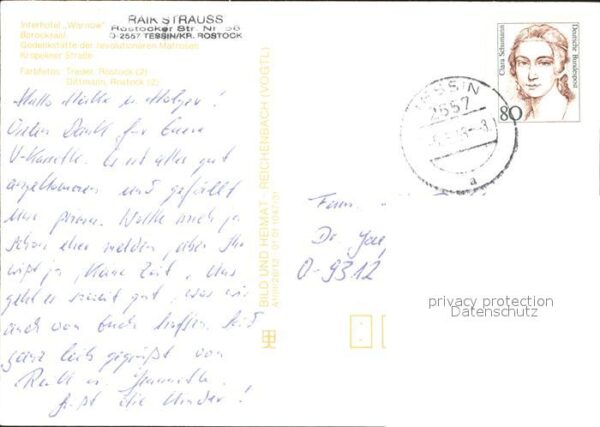 Interhotel „Warnow"
Barocksaal
Gedenkstätte der revolutionären Matrosen
Kröpeliner Straße
Farbfotos: Trader, Rostock (2)
Dittmann, Rostock (2)
RAIK STRAUSS
Rostocker Str. Nr 56
O-2557 TESSIN/KR. ROSTOCK
Hallo u. Holger!
Vielen Dank für Eure
V-Karte. Es ist alles gut
angekommen und gefällt
uns prima. Wollte mich ja
schon eher melden, aber Ihr
wißt ja, keine Zeit. Uns
geht es soweit gut, was wir
auch von Euch hoffen. Seid
ganz lieb gegrüßt von
Raik u.
die Kinder!
BILD UND HEIMAT · REICHENBACH (VOGTL)
TESSIN
2557
a
Clara Schumann
Deutsche Bundespost
80
Fam.
Dr.
O-9312
privacy protection
Datenschutz